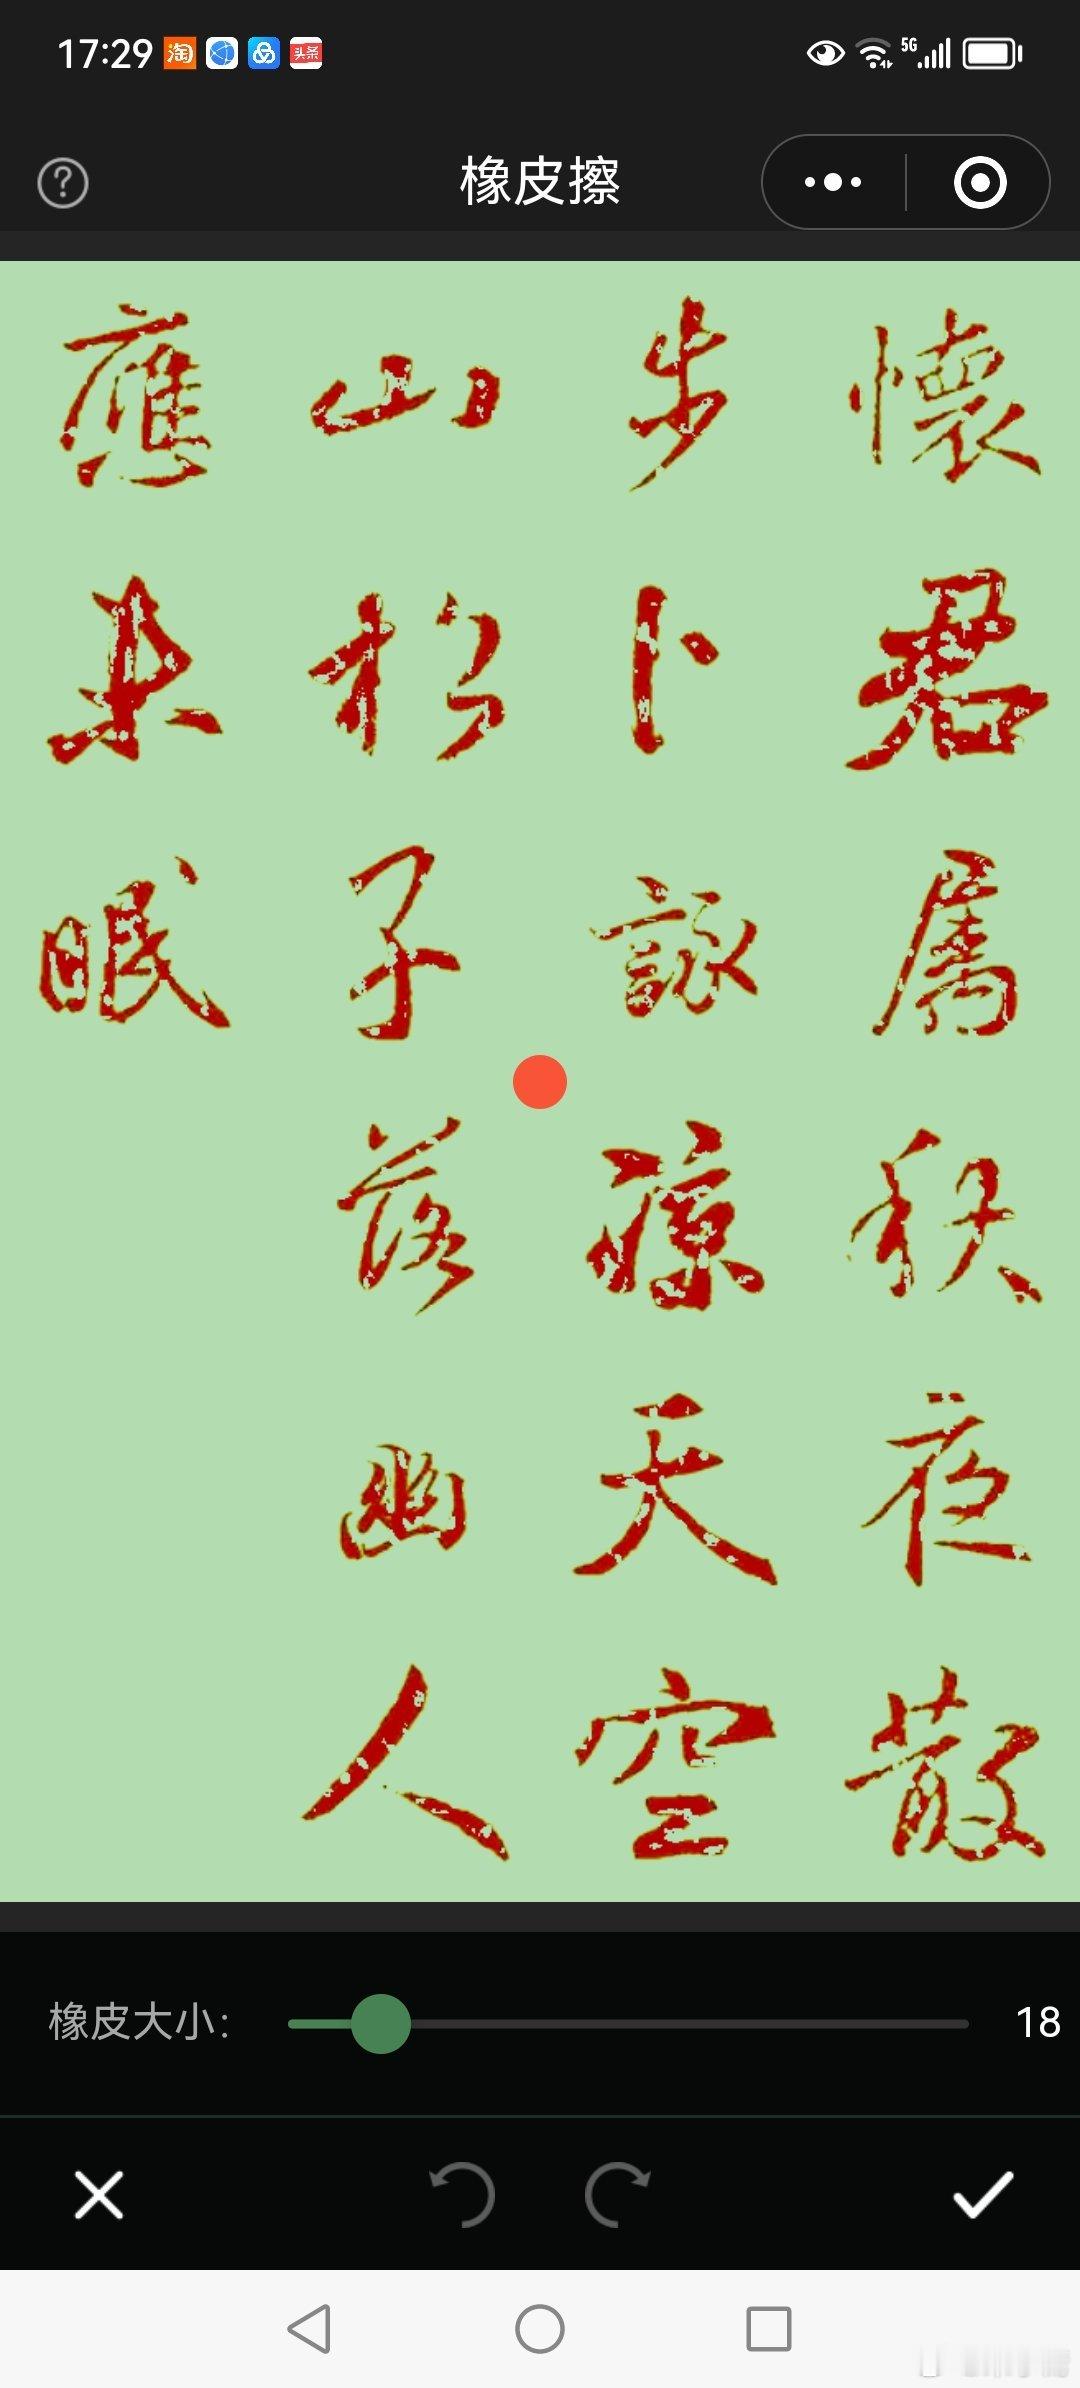 17:29 淘 头条 5G
橡皮擦
懷君屬秋夜散
步卜詠涼天空
山松子落幽人
應未眠
橡皮大小： 18